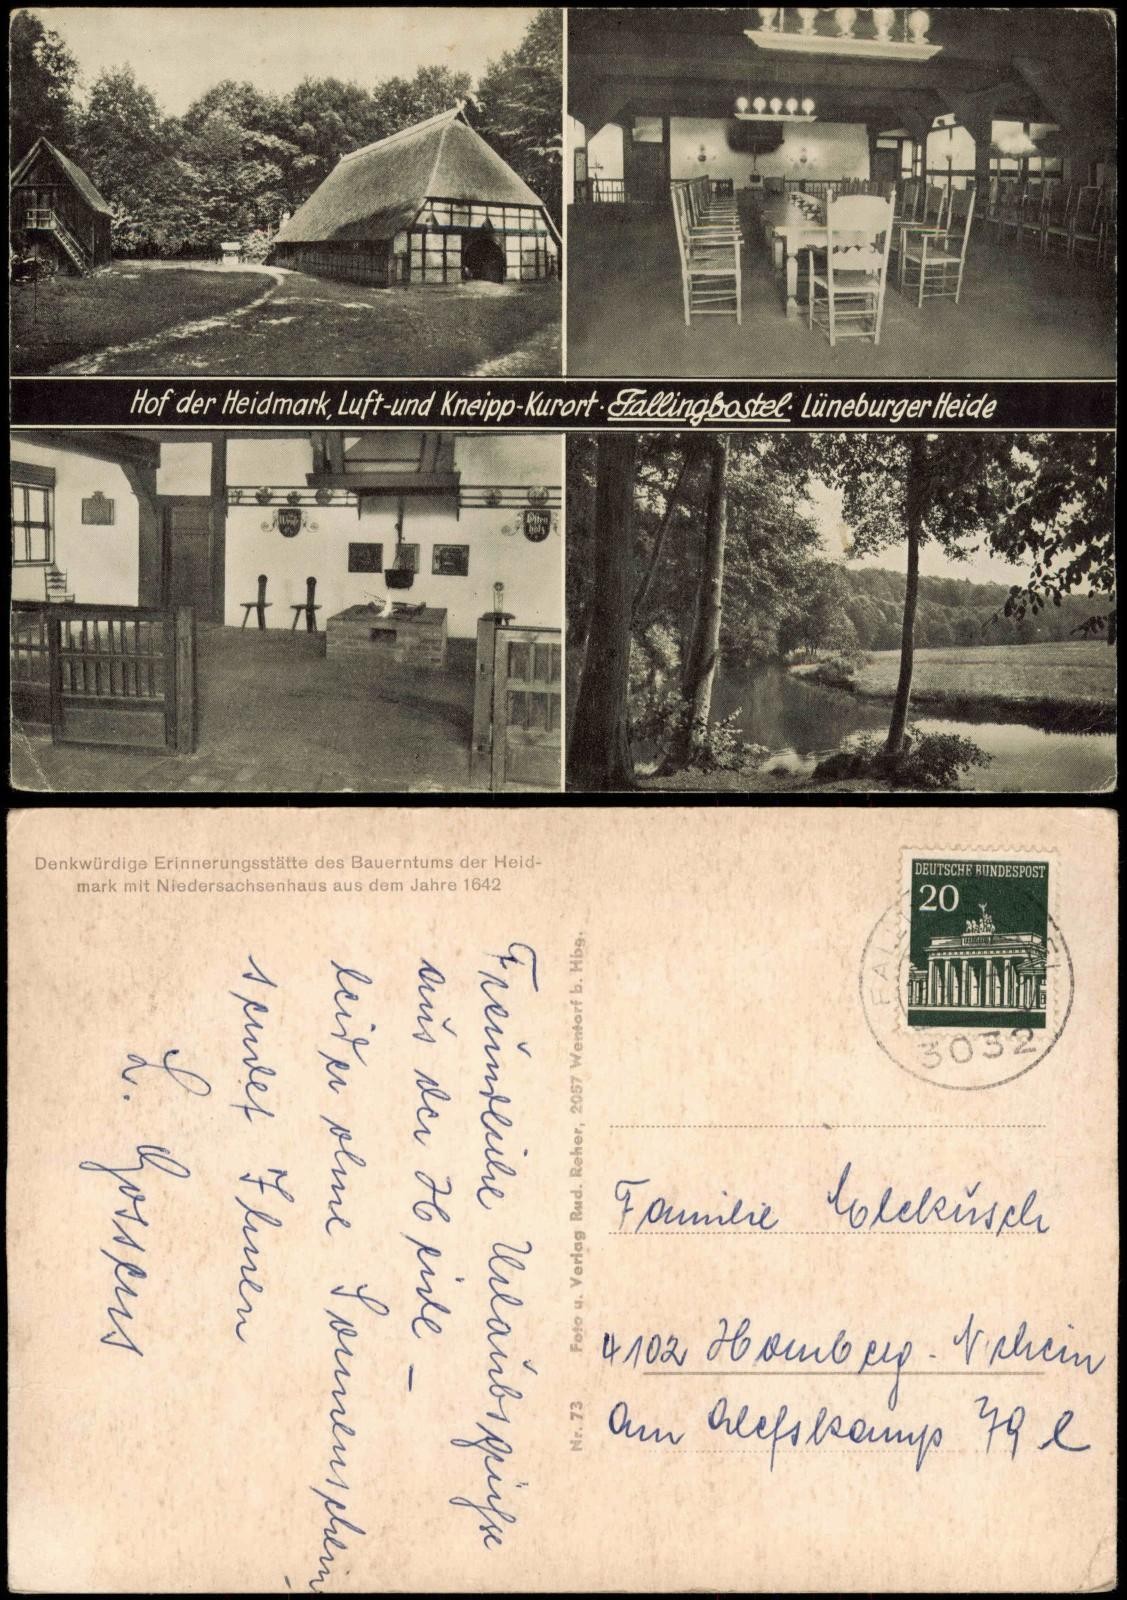 Hof der Heidmark, Luft-und Kneipp-Kurort · Fallingbostel · Lüneburger Heide
Denkwürdige Erinnerungsstätte des Bauerntums der Heid-
mark mit Niedersachsenhaus aus dem Jahre 1642
Freundliche Urlaubsgrüße
aus der Heide –
leider ohne Sonnenschein –
sendet Ihnen
L. Gossens
Nr. 73 Foto u. Verlag Rud. Reher, 2057 Wentorf b. Hbg.
DEUTSCHE BUNDESPOST
20
FALL
3032
Familie
4102 Homberg - Nrhein
am Alefskamp 79 l